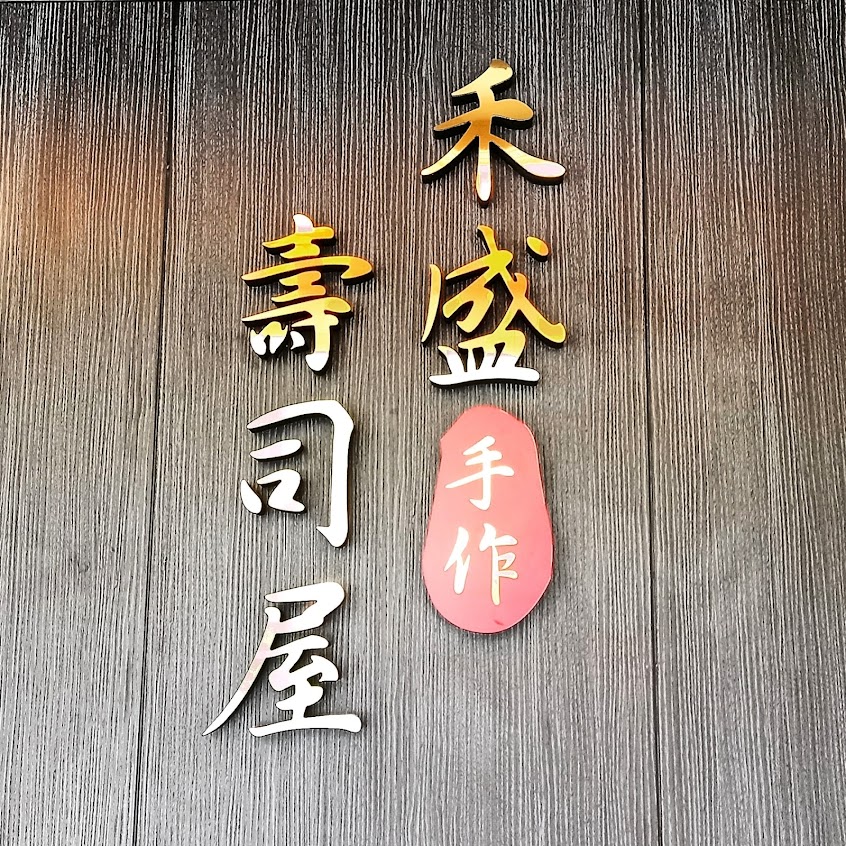 禾盛
手作
壽司屋